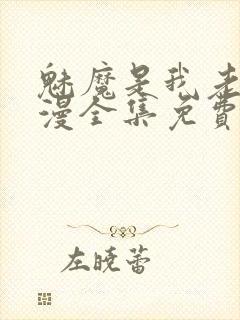 魅魔是我
漫全集免費
左曉蕾